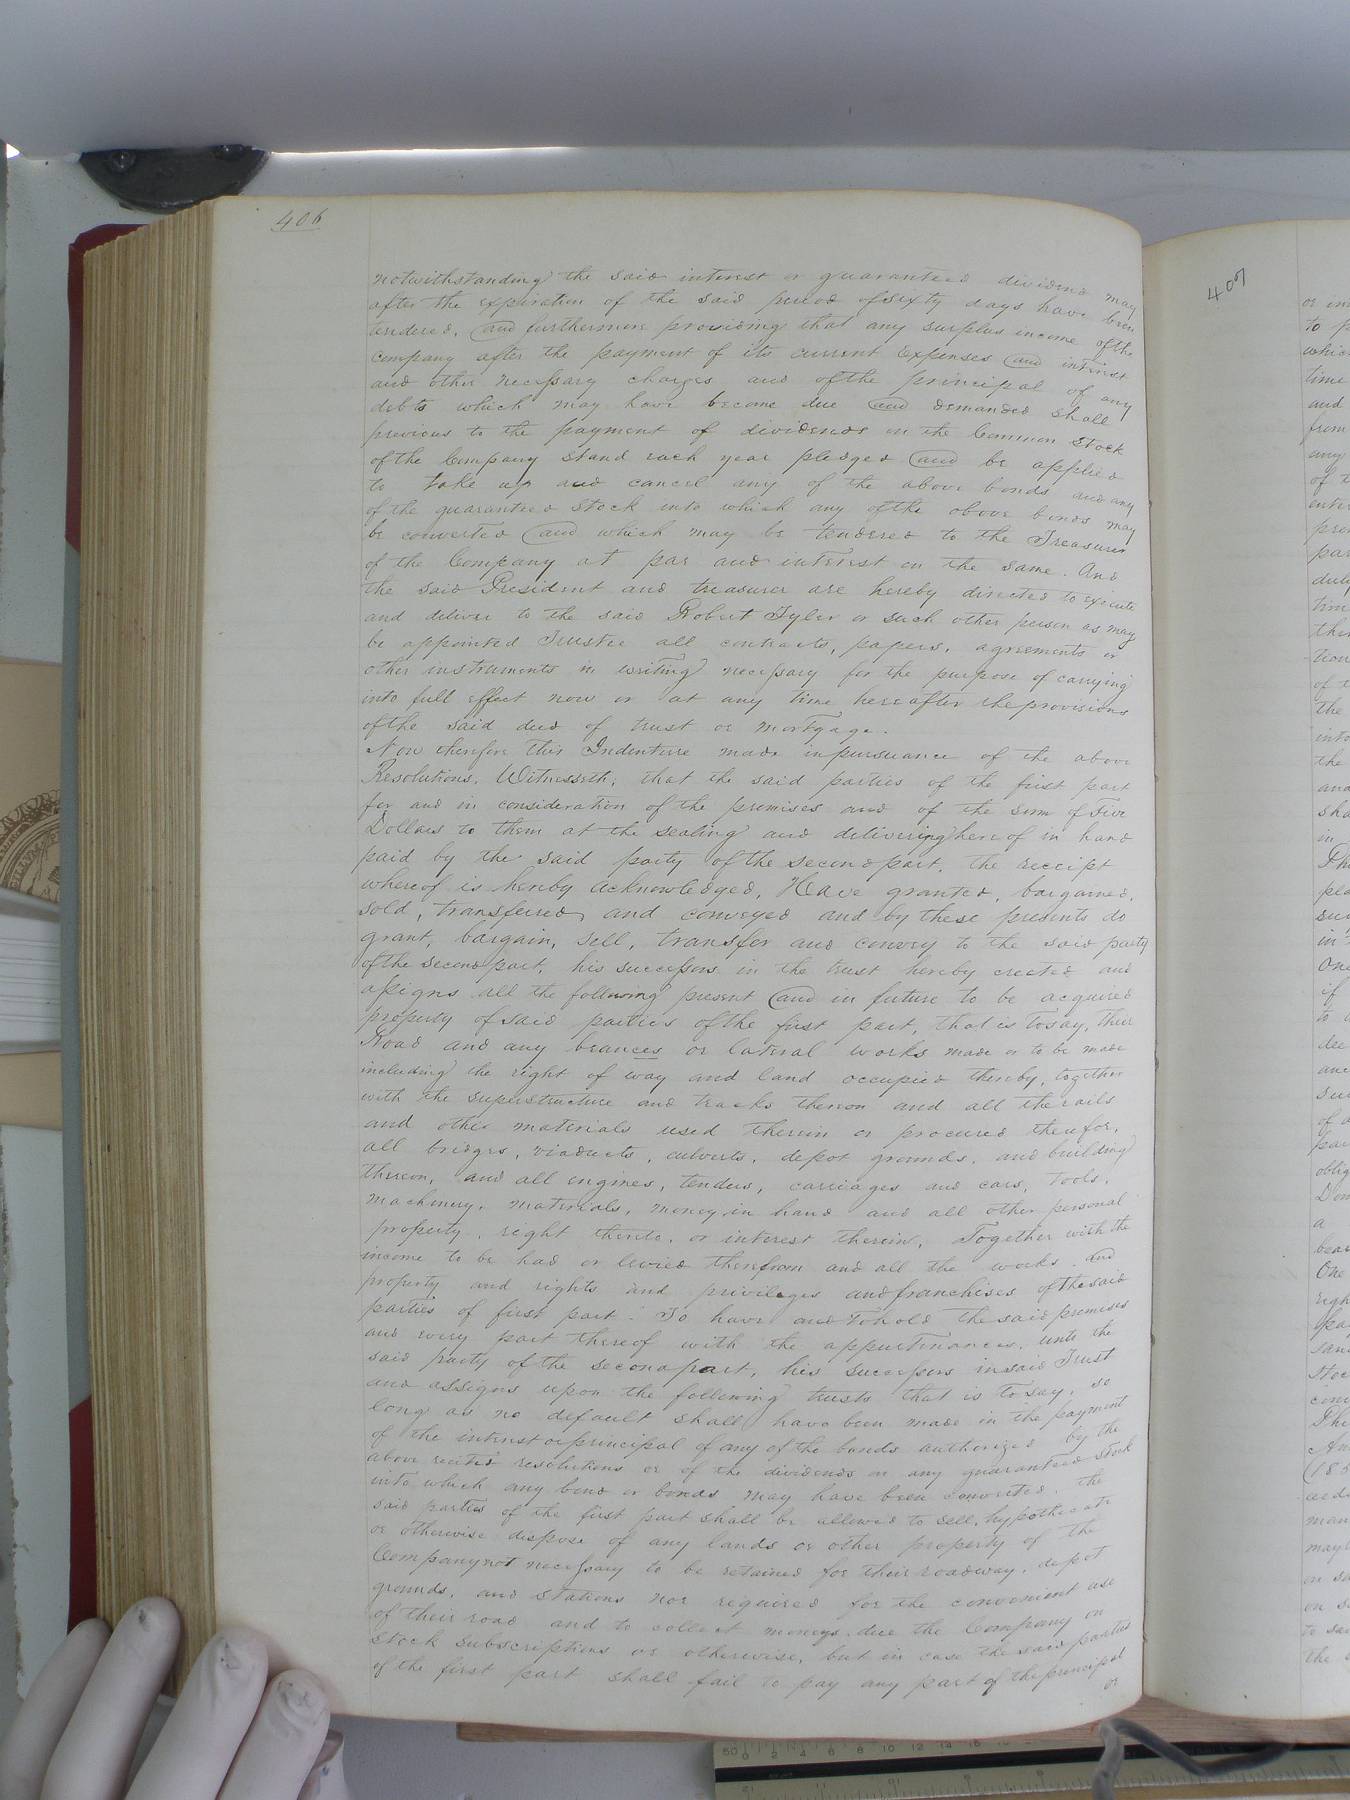 406
notwithstanding the said interest or guaranteed dividend may
after the expiration of the said period of sixty days have been
tendered, and furthermore providing that any surplus income of the
Company after the payment of its current Expenses and interest
and other necessary charges and of the principal of any
debts which may have become due and demanded shall
previous to the payment of dividends on the Common Stock
of the Company stand each year pledged and be applied
to take up and cancel any of the above bonds and any
of the guaranteed Stock into which any of the above bonds may
be converted and which may be tendered to the Treasurer
of the Company at par and interest on the same. And
the said President and treasurer are hereby directed to execute
and deliver to the said Robert Tyler or such other person as may
be appointed Trustee all contracts, papers, agreements or
other instruments in writing necessary for the purpose of carrying
into full effect now or at any time hereafter the provisions
of the said deed of trust or mortgage.
Now therefore this Indenture made in pursuance of the above
Resolutions, Witnesseth; that the said parties of the first part
for and in consideration of the premises and of the sum of Five
Dollars to them at the sealing and delivering hereof in hand
paid by the said party of the second part, the receipt
whereof is hereby acknowledged, Have granted, bargained,
sold, transferred, and conveyed and by these presents do
grant, bargain, sell, transfer and convey to the said party
of the second part, his successors in the trust hereby created and
assigns all the following present and in future to be acquired
property of said parties of the first part, that is to say, their
Road and any brances or lateral works made or to be made
including the right of way and land occupied thereby, together
with the superstructure and tracks thereon and all the rails
and other materials used therein or procured therefor,
all bridges, viaducts, culverts, depot grounds, and building
thereon, and all engines, tenders, carriages and cars, tools,
machinery, materials, money in hand and all other personal
property, right thereto, or interest therein, Together with the
income to be had or levied therefrom and all the works and
property and rights and privileges and franchises of the said
parties of first part. To have and to hold the said premises
and every part thereof with the appurtenances, unto the
said party of the second part, his successors in said Trust
and assigns upon the following trusts that is to say, so
long as no default shall have been made in the payment
of the interest or principal of any of the bonds authorized by the
above recited resolutions or of the dividends on any guaranteed stock
into which any bond or bonds may have been converted, the
said parties of the first part shall be allowed to sell, hypothecate
or otherwise dispose of any lands or other property of the
Company not necessary to be retained for their roadway, depot
grounds, and stations nor required for the convenient use
of their road and to collect moneys due the Company on
stock subscriptions or otherwise, but in case the said parties
of the first part shall fail to pay any part of the principal
or
407
to
which
time
and
from
any
the
into
the
and
in
One
if
a
One